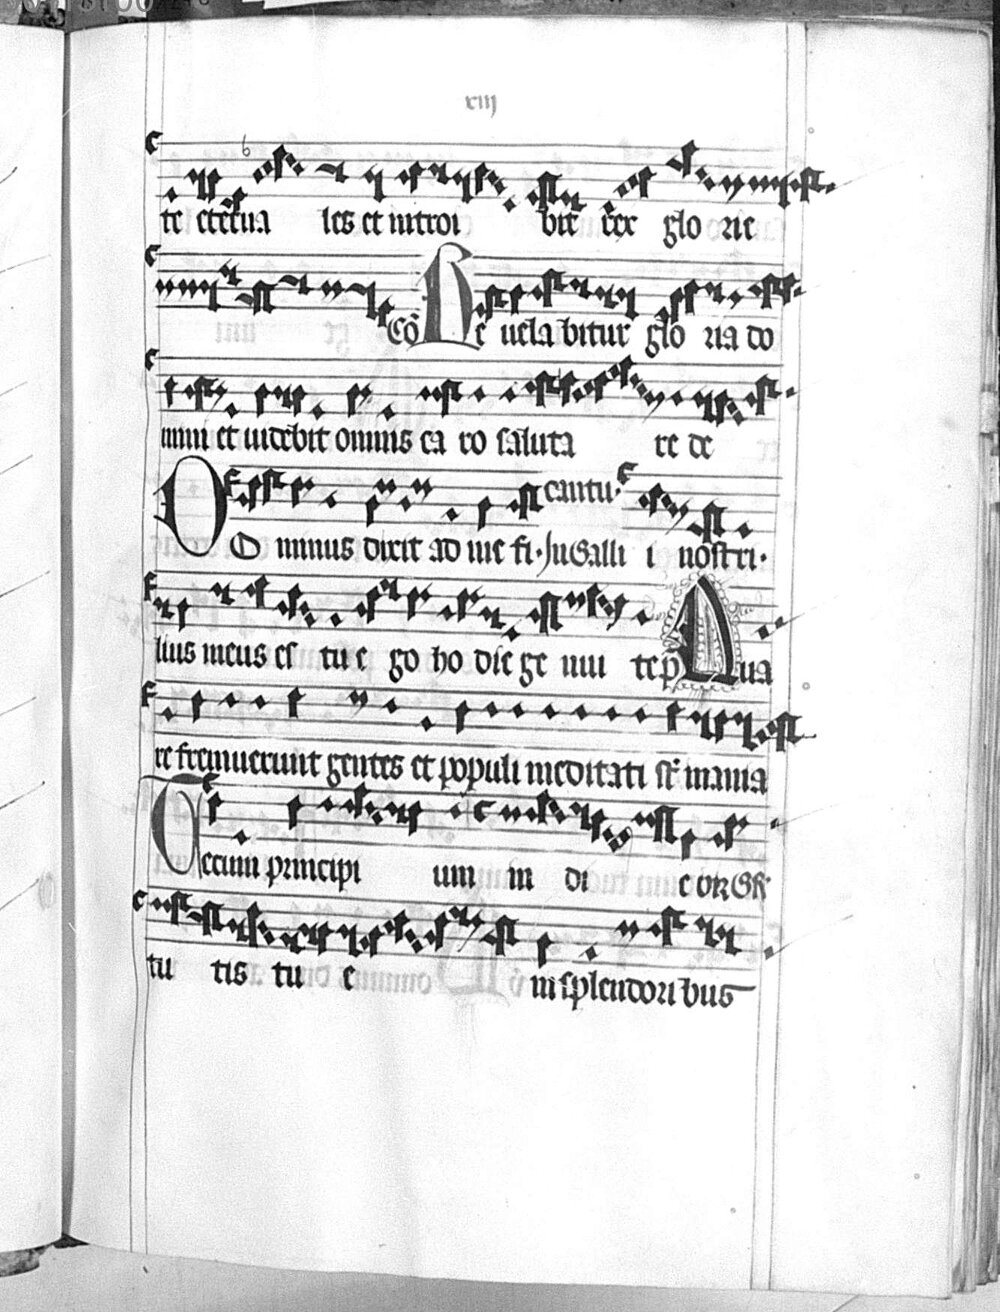 xiij
te eterna les et introi bit rex glo rie
Cō Re uela bitur glo ria do
mini et uidebit omnis ca ro saluta re de
cantu.
DO minus dixit ad me fi. In Galli i nostri.
lius meus es tu e go ho die ge nui te p̄ Qua
re fremuerunt gentes et populi meditati st̄ inania
Tecum principi um in di e
tu tis tu e in splendori bus